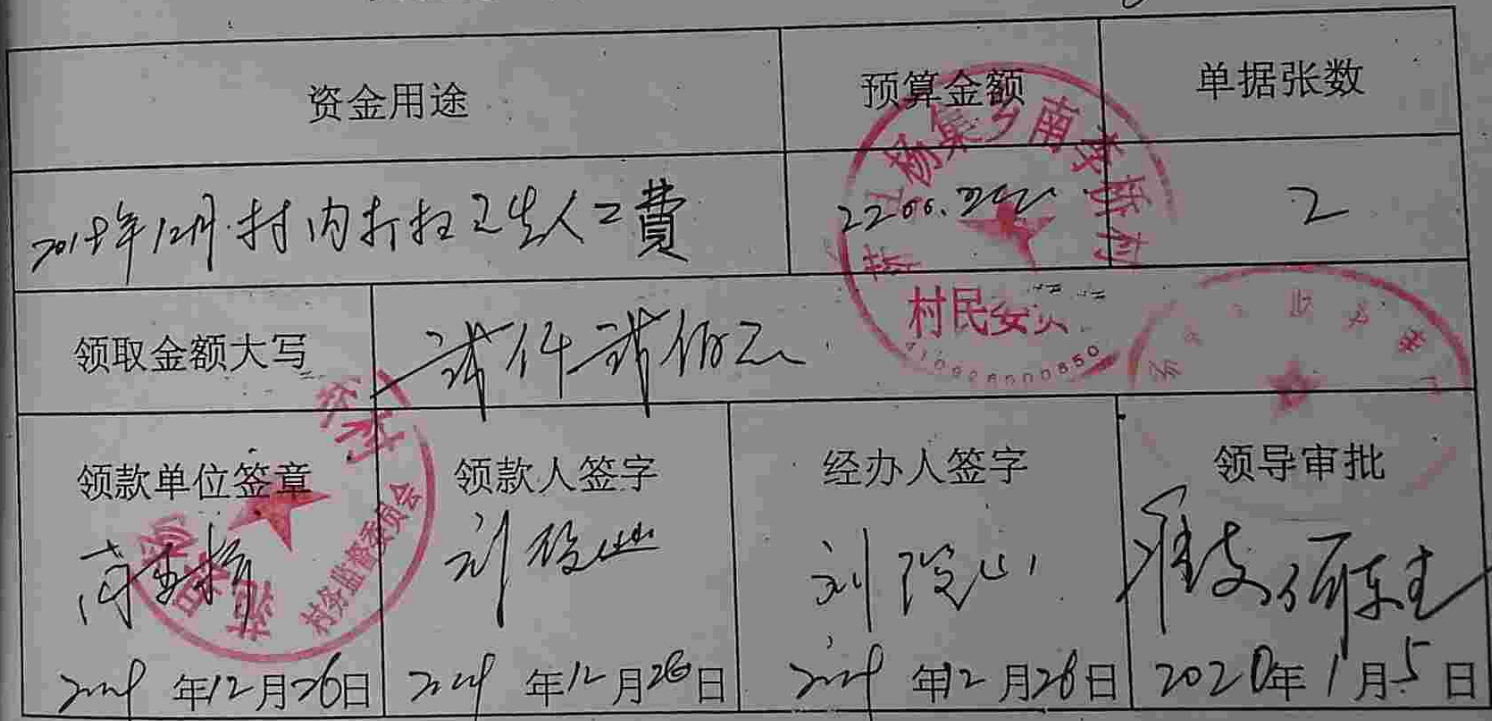 资金用途 预算金额 单据张数
2019年12月村内打扫卫生人工費 2200. 2
领取金额大写 贰仟贰佰元
领款单位签章 领款人签字 经办人签字 领导审批
刘 刘 准支
2019年12月26日 2019年12月26日 2019年12月26日 2020年1月5日
杨集乡南
村民委
村务监督委员会